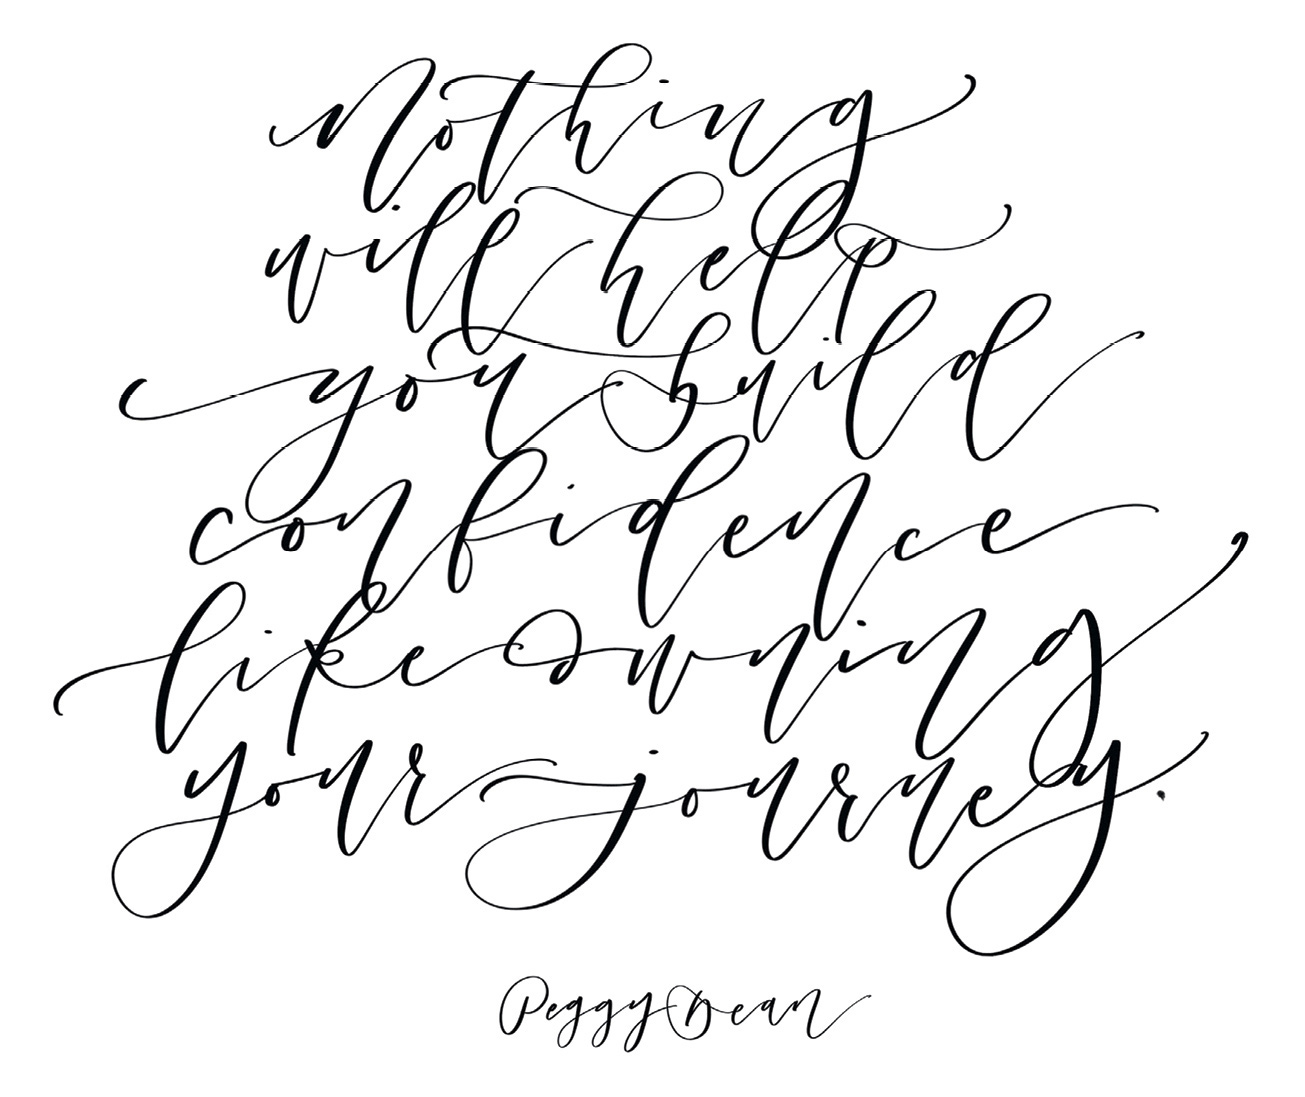 Nothing
will help
you build
confidence
like owning
your journey.
Peggy Dean